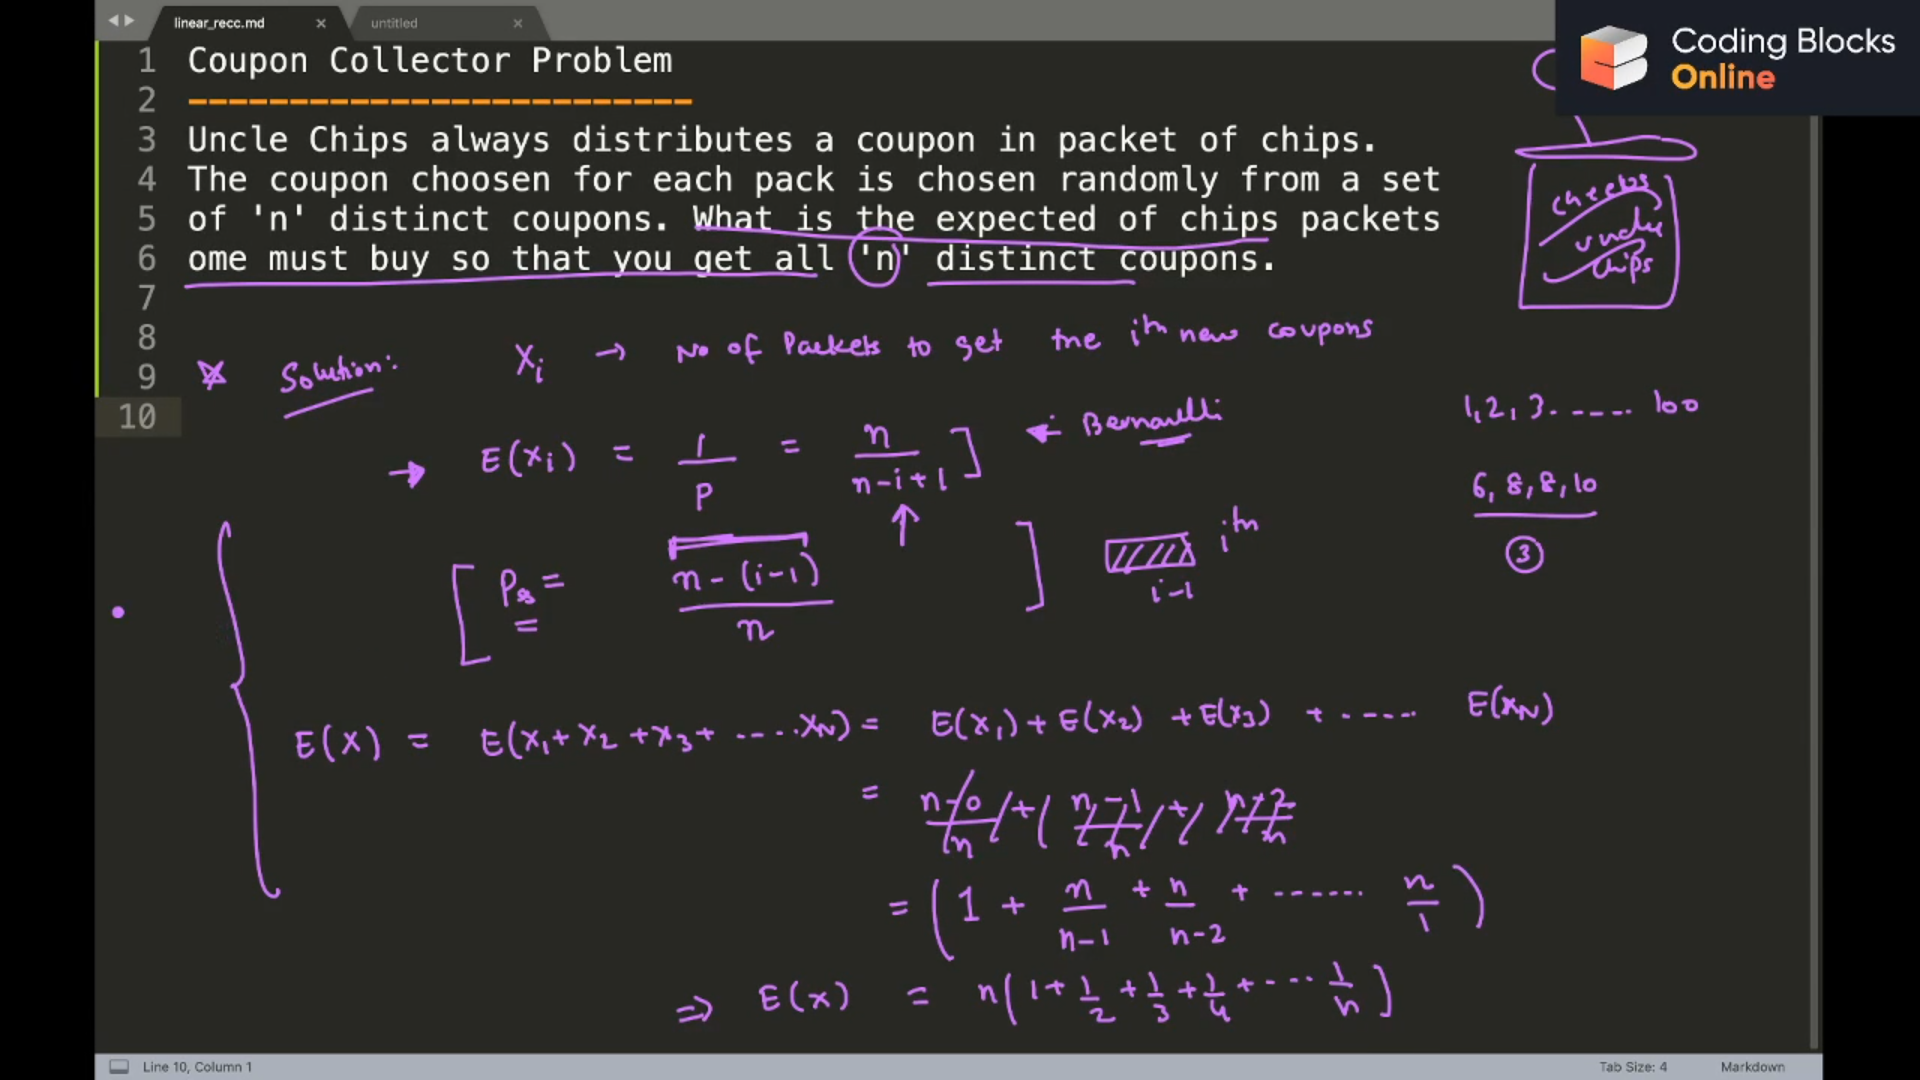 linear_recc.md × untitled ×
Coding Blocks
Online
1 Coupon Collector Problem
2 -------------------------
3 Uncle Chips always distributes a coupon in packet of chips.
4 The coupon choosen for each pack is chosen randomly from a set
5 of 'n' distinct coupons. What is the expected of chips packets
6 ome must buy so that you get all 'n' distinct coupons.
7
8
9
10
cheetos
uncle
chips
Solution: Xi → No of Packets to get the ith new coupons
1, 2, 3 ...... 100
→ E(xi) = 1/P = n/(n-i+1) ] ← Bernaulli
6, 8, 8, 10
3
[ Ps = (n-(i-1))/n ] ith
i-1
E(X) = E(x1 + x2 + x3 + ....xN) = E(x1) + E(x2) + E(x3) + ..... E(xN)
= n-0/n + (n-1/n) + n-2/n
= (1 + n/(n-1) + n/(n-2) + ...... n/1)
⇒ E(x) = n(1 + 1/2 + 1/3 + 1/4 + ... 1/n)
Line 10, Column 1 Tab Size: 4 Markdown